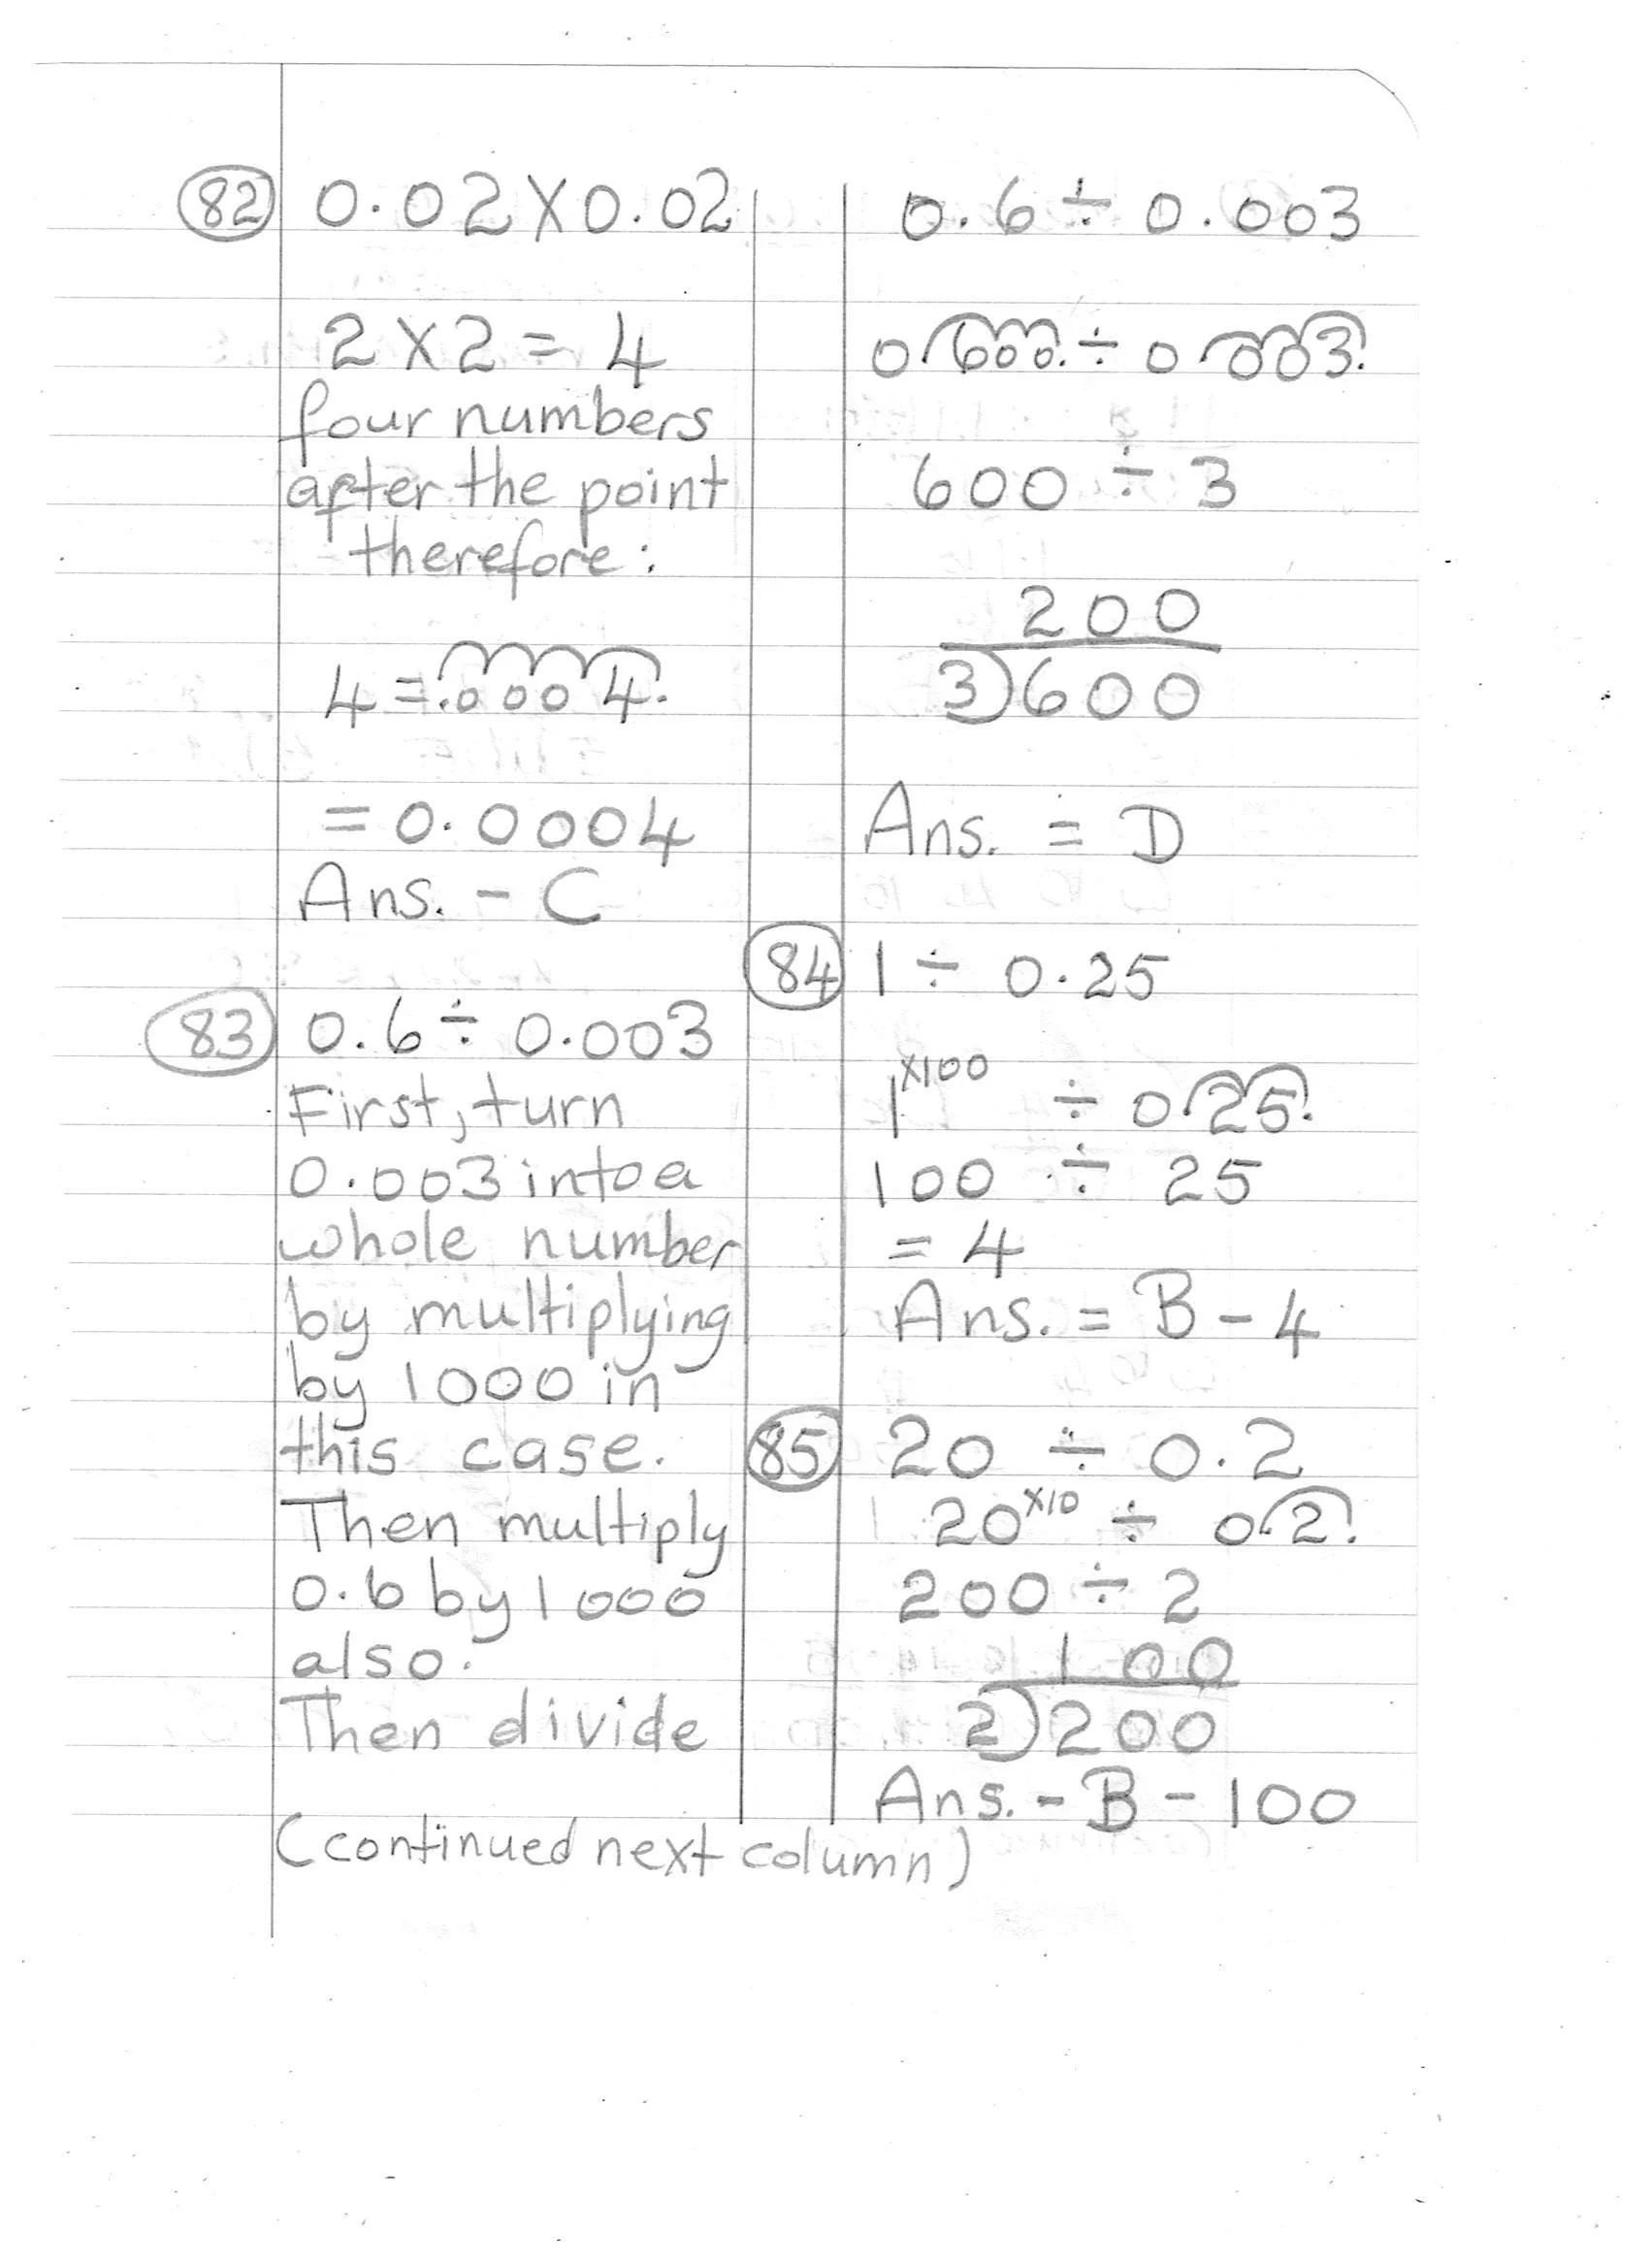 82 0.02 X 0.02
2 X 2 = 4
four numbers
after the point
therefore:
4 = .0004.
= 0.0004
Ans. - C
83 0.6 ÷ 0.003
First, turn
0.003 into a
whole number
by multiplying
by 1000 in
this case.
Then multiply
0.6 by 1000
also.
Then divide
(continued next column)
0.6 ÷ 0.003
0.600. ÷ 0.003.
600 ÷ 3
200
3)600
Ans. = D
84 1 ÷ 0.25
1 x100 ÷ 0.25.
100 ÷ 25
= 4
Ans. = B - 4
85 20 ÷ 0.2
20 x10 ÷ 0.2.
200 ÷ 2
100
2)200
Ans. - B - 100